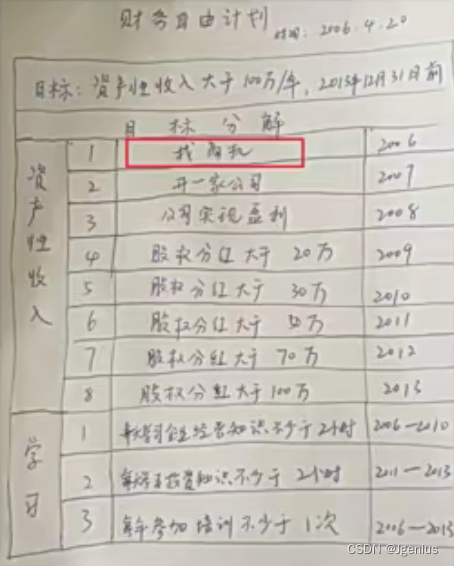 财务自由计划
时间：2006.4.20
目标：资产性收入大于100万/年，2013年12月31日前
目标分解
资产性收入
1 找商机 2006
2 开一家公司 2007
3 公司实现盈利 2008
4 股权分红大于 20万 2009
5 股权分红大于 30万 2010
6 股权分红大于 50万 2011
7 股权分红大于 70万 2012
8 股权分红大于100万 2013
学习
1 每天学习企业经营知识不少于2小时 2006—2010
2 每天学习投资知识不少于 2小时 2011—2013
3 每年参加培训不少于1次 2006—2013
CSDN @Jgenius